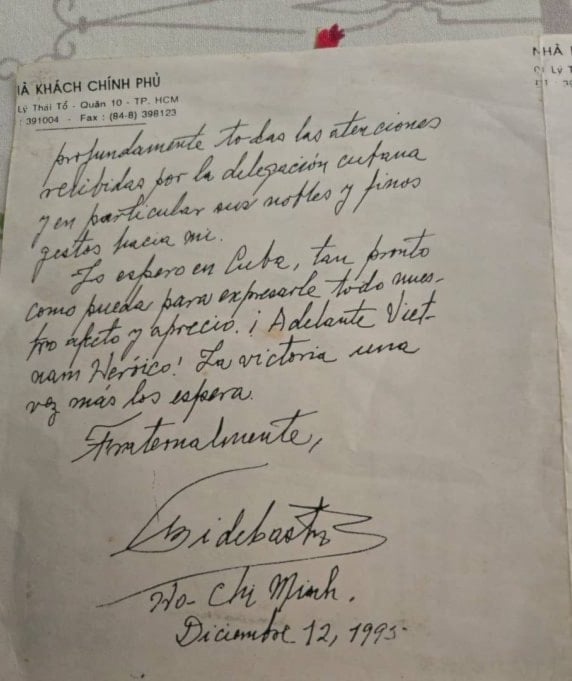 IÀ KHÁCH CHÍNH PHỦ
Lý Thái Tổ - Quận 10 - TP. HCM
: 391004 - Fax : (84-8) 398123
NHÀ
Lý T
profundamente todas las atenciones
recibidas por la delegación cubana
y en particular sus nobles y finos
gestos hacia mi.
Lo espero en Cuba, tan pronto
como pueda para expresarle todo nues-
tro afecto y aprecio. ¡Adelante Viet-
nam Heróico! La victoria una
vez más los espera.
Fraternalmente,
Ho-Chi Minh.
Diciembre 12, 1995